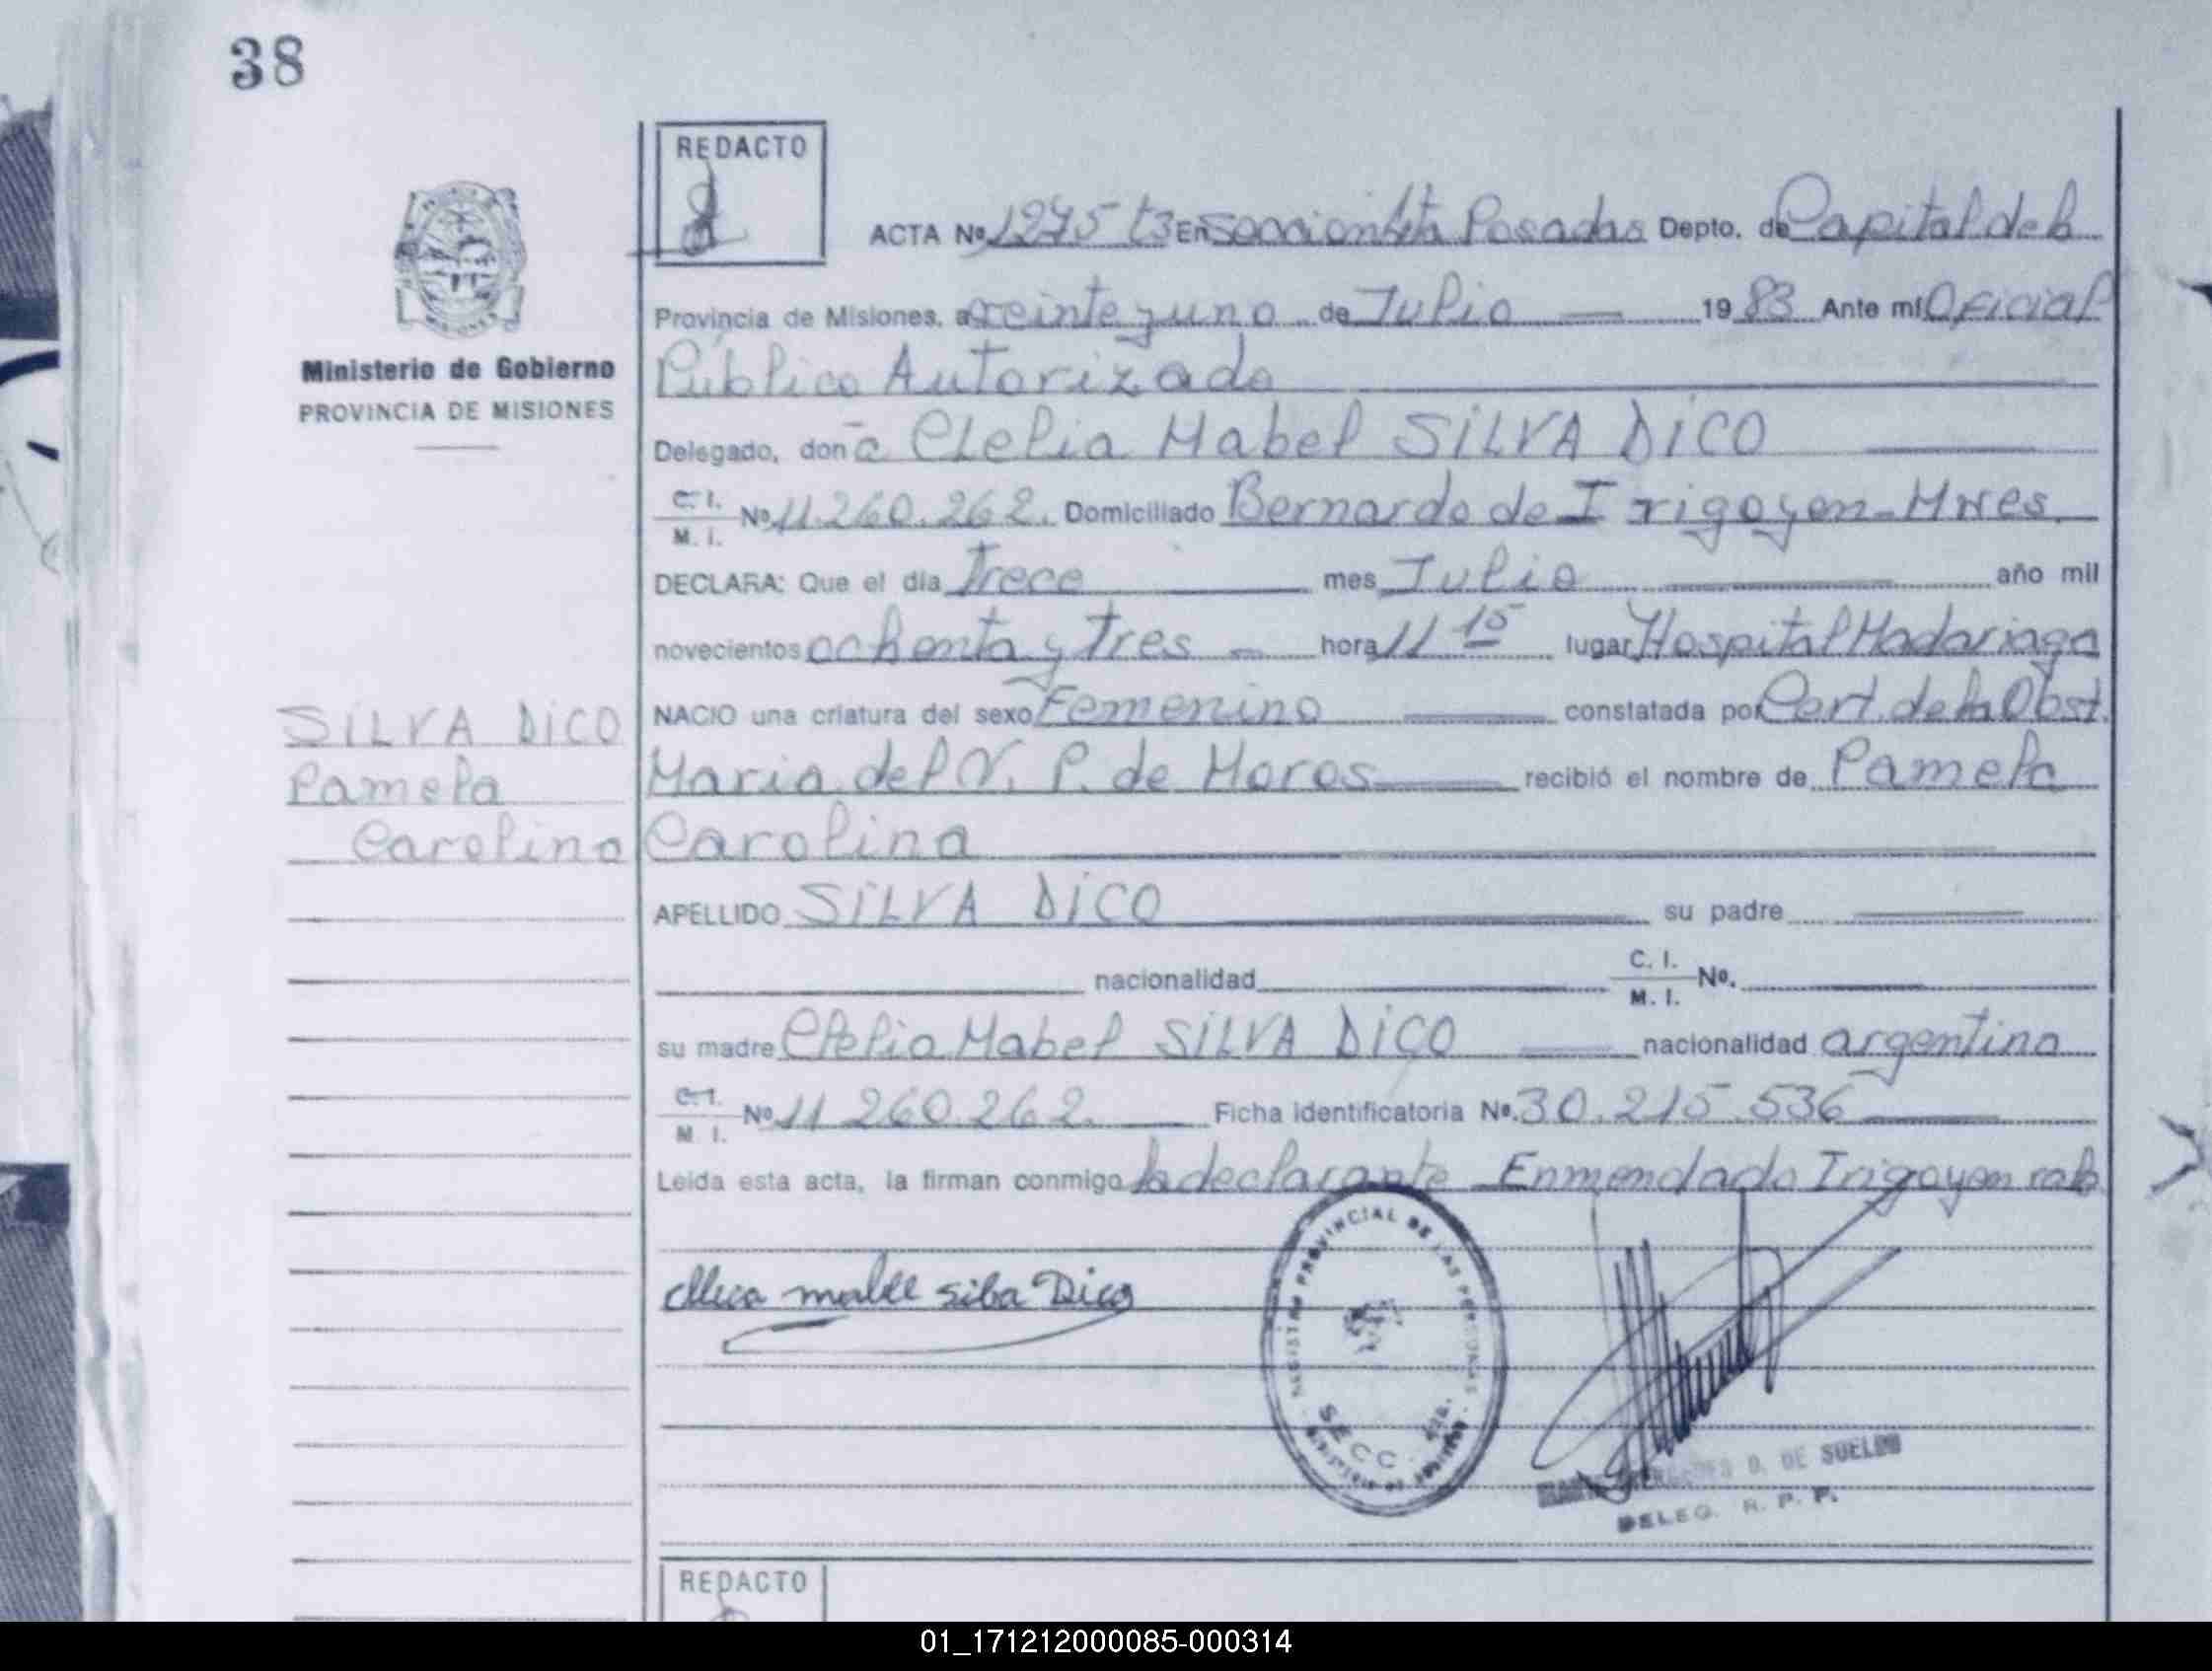 38
REDACTO
ACTA Nº 1275 t3 En sección 6ta Posadas Depto. de Capital de la
Provincia de Misiones, a veinte y uno de Julio 1983 Ante mí Oficial
Ministerio de Gobierno
PROVINCIA DE MISIONES
Público Autorizado
Delegado, doña Clelia Mabel SILVA DICO
C. I. M. I. Nº 11.260.262. Domiciliado Bernardo de Irigoyen - Mnes.
DECLARA: Que el día Trece mes Julio año mil
novecientos ochenta y Tres hora 11 15 lugar Hospital Madariaga
NACIO una criatura del sexo Femenino constatada por Cert. de la Obst.
SILVA DICO
Pamela
Carolina
Maria del V. P. de Moros recibió el nombre de Pamela
Carolina
APELLIDO SILVA DICO su padre
nacionalidad C. I. M. I. Nº.
su madre Clelia Mabel SILVA DICO nacionalidad argentina
C. I. M. I. Nº 11 260.262. Ficha identificatoria Nº. 30.215.536
Leída esta acta, la firman conmigo la declarante Enmendado Irigoyen vale
REGISTRO PROVINCIAL DE LAS PERSONAS
SECC.
D. DE SUELDO
DELEG. R. P. P.
REDACTO
01_171212000085-000314